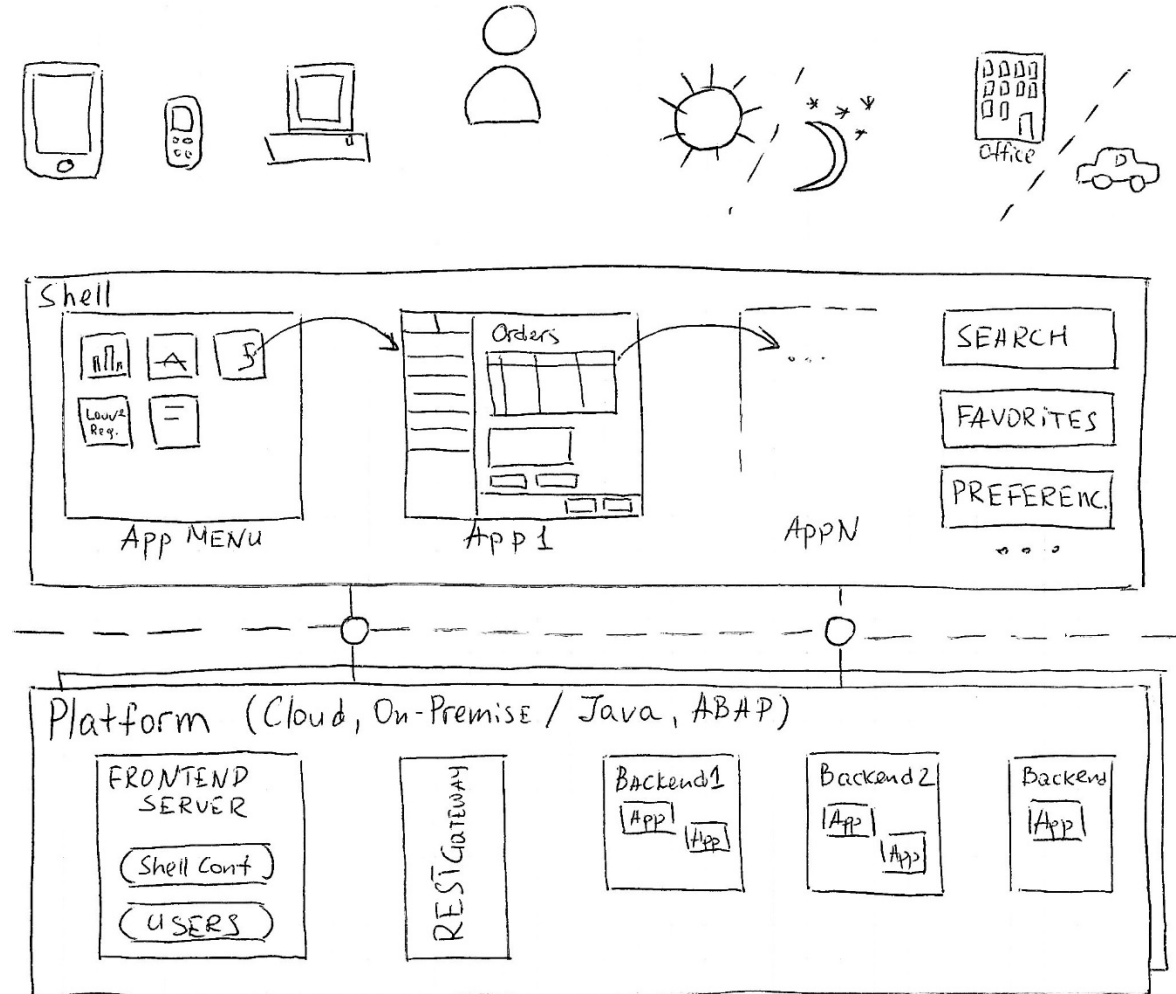 Office
Shell
Orders
SEARCH
FAVORITES
PREFERENC.
Req.
App MENU
App 1
App N
Platform (Cloud, On-Premise / Java, ABAP)
FRONTEND
SERVER
Shell Conf
USERS
REST GATEWAY
Backend1
App
App
Backend2
App
App
Backend
App